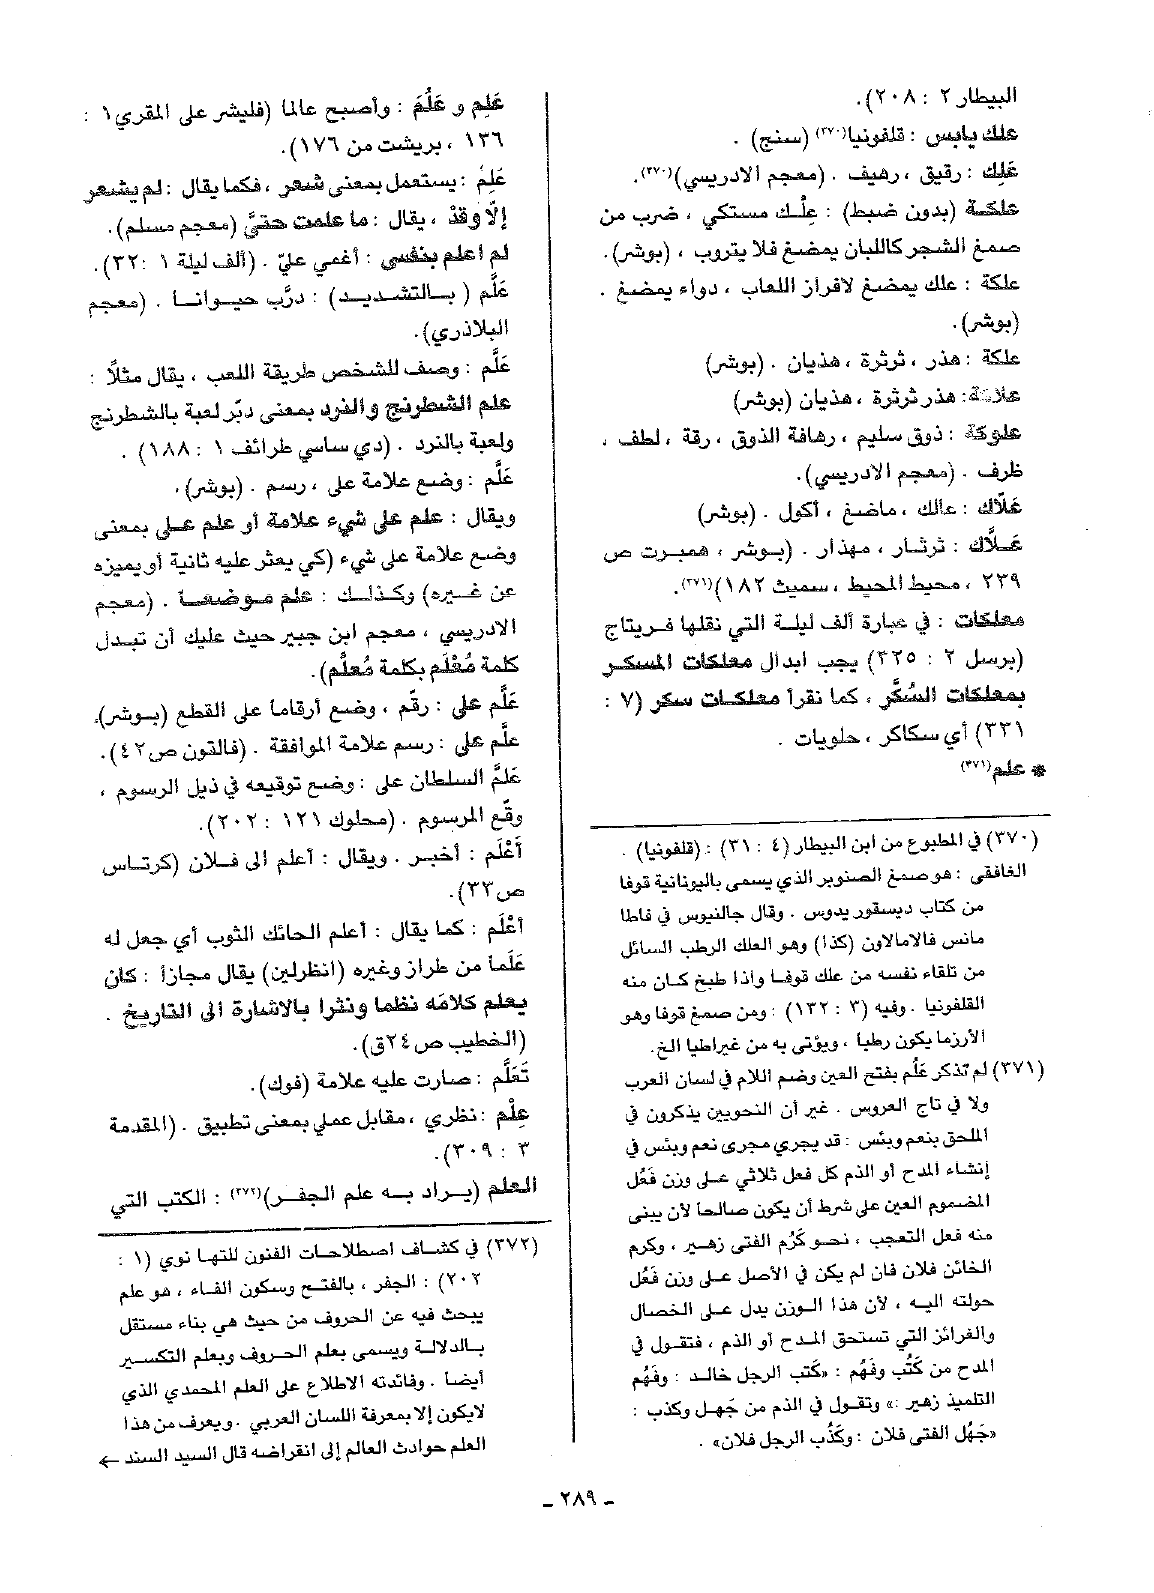 البيطار ٢ : ٢٠٨).
علك يابس : قلفونيا(٣٧٠) (سنج) .
عَلِك : رقيق ، رهيف . (معجم الادريسي)(٣٧٠).
علكة (بدون ضبط) : عِلْك مستكي ، ضرب من
صمغ الشجر كاللبان يمضغ فلا يتروب ، (بوشر).
علكة : علك يمضغ لافراز اللعاب ، دواء يمضغ .
(بوشر).
علكة : هذر ، ثرثرة ، هذيان . (بوشر)
علاكة: هذر ثرثرة ، هذيان (بوشر)
علوكة : ذوق سليم ، رهافة الذوق ، رقة ، لطف ،
ظرف . (معجم الادريسي).
عَلّاك : عالك ، ماضغ ، أكول . (بوشر)
عَلَّاك : ثرثار ، مهذار . (بوشر ، همبرت ص
٢٣٩ ، محيط المحيط ، سميث ١٨٢)(٣٧١).
معلكات : في عبارة ألف ليلة التي نقلها فريتاج
(برسل ٢ : ٣٢٥) يجب ابدال معلكات المسكر
بمعلكات السُكَّر ، كما نقرأ معلكات سكر (٧ :
٣٣١) أي سكاكر ، حلويات .
* علم(٣٧١)
(٣٧٠) في المطبوع من ابن البيطار (٤ : ٣١) : (قلفونيا) .
الغافقي : هو صمغ الصنوبر الذي يسمى باليونانية قوفا
من كتاب ديسقوريدوس . وقال جالنيوس في قاطا
مانس فالامالاون (كذا) وهو العلك الرطب السائل
من تلقاء نفسه من علك قوفا واذا طبخ كان منه
القلفونيا . وفيه (٣ : ١٣٢) : ومن صمغ قوفا وهو
الأرزما يكون رطبا ، ويؤتى به من غيراطيا الخ.
(٣٧١) لم تذكر عَلُم بفتح العين وضم اللام في لسان العرب
ولا في تاج العروس . غير أن النحويين يذكرون في
الملحق بنعم وبئس : قد يجري مجرى نعم وبئس في
إنشاء المدح أو الذم كل فعل ثلاثي على وزن فَعُل
المضموم العين على شرط أن يكون صالحا لأن يبنى
منه فعل التعجب ، نحو كَرُم الفتى زهير ، وكرم
الخائن فلان فان لم يكن في الأصل على وزن فَعُل
حولته اليه ، لأن هذا الوزن يدل على الخصال
والغرائز التي تستحق المدح أو الذم ، فتقول في
المدح من كَتُب وفَهُم : «كَتب الرجل خالد : وفَهُم
التلميذ زهير :» وتقول في الذم من جَهل وكذب :
«جَهُل الفتى فلان : وكَذُب الرجل فلان» .
عَلِم و عَلُمَ : وأصبح عالما (فليشر على المقري ١ :
١٣٦ ، بريشت من ١٧٦).
عَلِمَ : يستعمل بمعنى شعر ، فكما يقال : لم يشعر
إلّا وقدْ ، يقال : ما علمت حتىَّ (معجم مسلم).
لم اعلم بنفسي : أغمي عليّ . (ألف ليلة ١ : ٣٢).
عَلَّم ( بالتشديد) : درَّب حيوانا . (معجم
البلاذري).
عَلَّم : وصف للشخص طريقة اللعب ، يقال مثلاً :
علم الشطرنج والنرد بمعنى دبّر لعبة بالشطرنج
ولعبة بالنرد . (دي ساسي طرائف ١ : ١٨٨) .
عَلَّم : وضع علامة على ، رسم . (بوشر).
ويقال : علم على شيء علامة أو علم على بمعنى
وضع علامة على شيء (كي يعثر عليه ثانية أو يميزه
عن غيره) وكذلك : علم موضعة . (معجم
الادريسي ، معجم ابن جبير حيث عليك أن تبدل
كلمة مُعْلَم بكلمة مُعلَّم).
عَلَّم على : رقّم ، وضع أرقاما على القطع (بوشر).
علَّم على : رسم علامة الموافقة . (فالتون ص ٤٢).
عَلَّمَ السلطان على : وضع توقيعه في ذيل الرسوم ،
وقّع المرسوم . (مملوك ١٢١ : ٢٠٢).
أعْلَم : أخبر . ويقال : أعلم الى فلان (كرتاس
ص ٢٣).
أعْلَم : كما يقال : أعلم الحائك الثوب أي جعل له
عَلَما من طراز وغيره (انظرلين) يقال مجازا : كان
يعلم كلامَه نظما ونثرا بالاشارة الى التاريخ .
(الخطيب ص ٢٤ق).
تَعَلَّم : صارت عليه علامة (فوك).
عِلْم : نظري ، مقابل عملي بمعنى تطبيق . (المقدمة
٣ : ٣٠٩).
العلم (يراد به علم الجفر)(٣٧٢) : الكتب التي
(٣٧٢) في كشاف اصطلاحات الفنون للتها نوي (١ :
٢٠٢) : الجفر ، بالفتح وسكون الفاء ، هو علم
يبحث فيه عن الحروف من حيث هي بناء مستقل
بالدلالة ويسمى بعلم الحروف وبعلم التكسير
أيضا . وفائدته الاطلاع على العلم المحمدي الذي
لايكون إلا بمعرفة اللسان العربي . ويعرف من هذا
العلم حوادث العالم إلى انقراضه قال السيد السند ←
- ٢٨٩ -